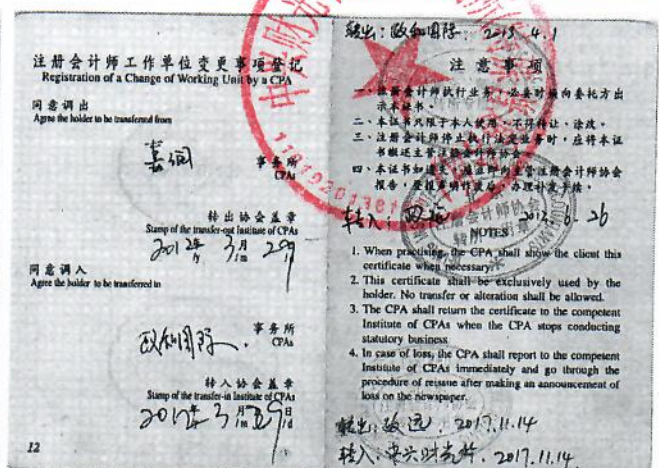 注册会计师工作单位变更事项登记
Registration of a Change of Working Unit by a CPA
同意调出
Agree the holder to be transferred from
事务所
CPAs
转出协会盖章
Stamp of the transfer-out Institute of CPAs
2012年 3月 29日
/y /m /d
同意调入
Agree the holder to be transferred to
政和国际
事务所
CPAs
转入协会盖章
Stamp of the transfer-in Institute of CPAs
2012年 3月 29日
/y /m /d
12
转出：政和国际 2013.4.1
注意事项
一、注册会计师执行业务，必要时须向委托方出
示本证书。
二、本证书只限于本人使用，不得转让、涂改。
三、注册会计师停止执行法定业务时，应将本证
书缴还主管注册会计师协会。
四、本证书如遗失，应立即向主管注册会计师协会
报告，登报声明作废后，办理补发手续。
转入：政远
NOTES
1. When practising, the CPA shall show the client this
certificate when necessary.
2. This certificate shall be exclusively used by the
holder. No transfer or alteration shall be allowed.
3. The CPA shall return the certificate to the competent
Institute of CPAs when the CPA stops conducting
statutory business.
4. In case of loss, the CPA shall report to the competent
Institute of CPAs immediately and go through the
procedure of reissue after making an announcement of
loss on the newspaper.
转出：政远. 2017.11.14
转入：中兴财光华. 2017.11.14